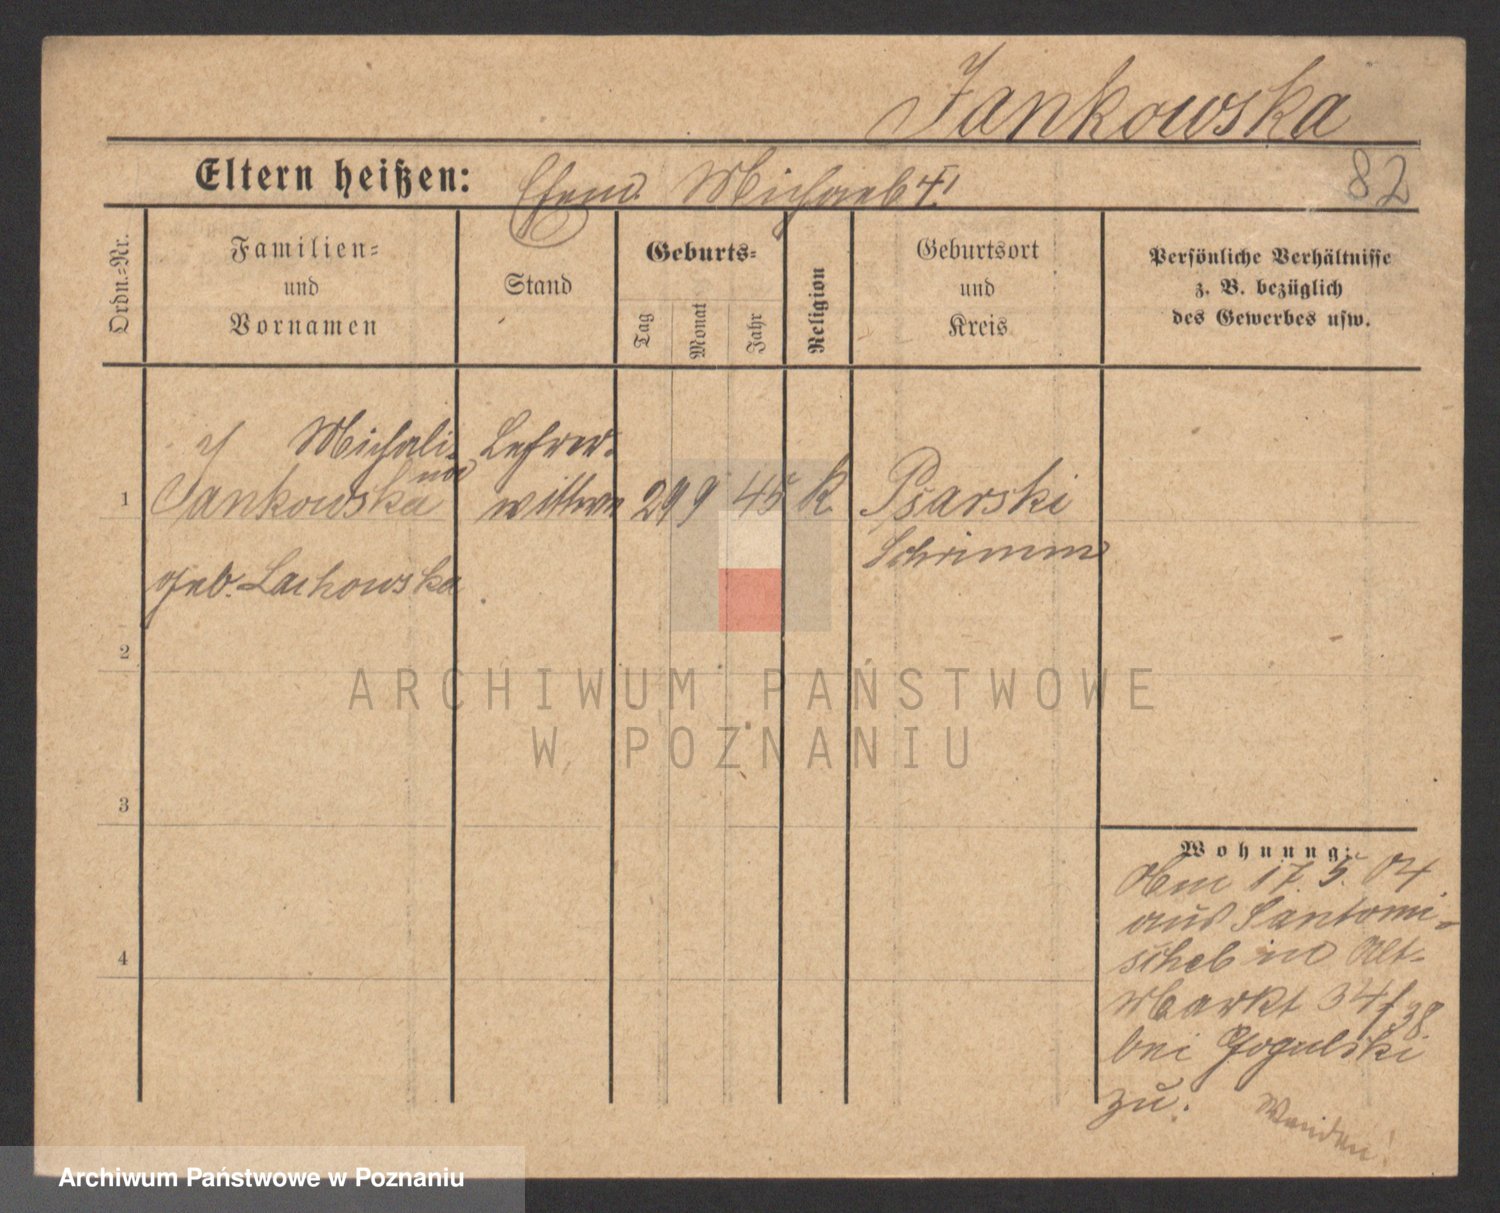 Jankowska
82
Eltern heißen: Michael
Ordn.=Nr.
Familien=
und
Vornamen
Stand
Geburts=
Tag
Monat
Jahr
Religion
Geburtsort
und
Kreis
Persönliche Verhältnisse
z. B. bezüglich
des Gewerbes usw.
Michali-
na
Jankowska
geb. Lachowska
1
Lehrer-
wittwe
29 9 45 K.
Psarski
Schrimm
2
3
4
ARCHIWUM PAŃSTWOWE
W POZNANIU
Wohnung:
Am 17. 5. 04
aus Santomi-
schel in Alt-
Markt 34/38
bei Gogulski
zu.
Wenden!
Archiwum Państwowe w Poznaniu